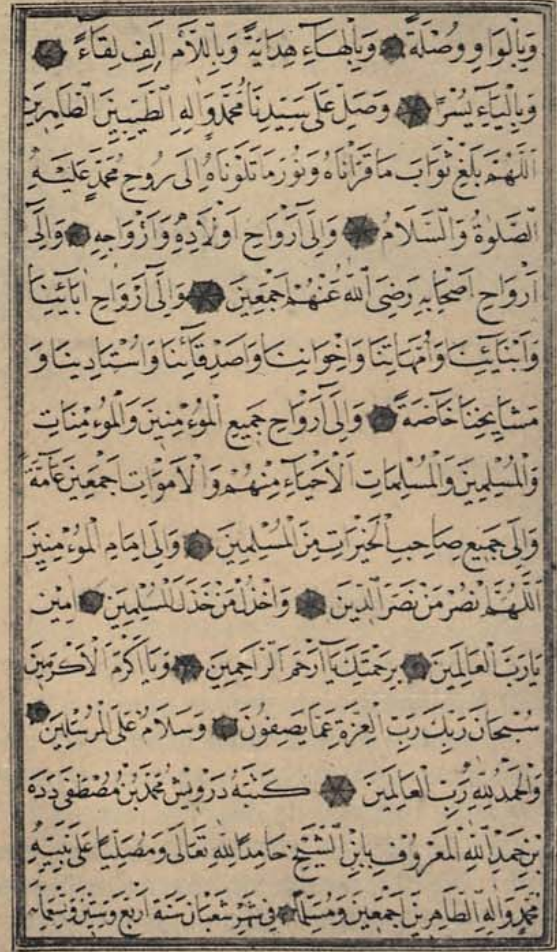 وَبِالْوَاوِ وُصْلَةً وَبِالْهَاءِ هِدَايَةً وَبِاللَّامِ اَلِفْ لِقَاءً
وَبِالْيَاءِ يُسْرًا وَصَلِّ عَلَى سَيِّدِنَا مُحَمَّدٍ وَاٰلِهِ الطَّيِّبِينَ الطَّاهِرِينَ
اَللّٰهُمَّ بَلِّغْ ثَوَابَ مَا قَرَأْنَاهُ وَنُورَ مَا تَلَوْنَاهُ اِلَى رُوحِ مُحَمَّدٍ عَلَيْهِ
الصَّلٰوةُ وَالسَّلَامُ وَاِلَى اَرْوَاحِ اَوْلَادِهِ وَاَزْوَاجِهِ وَاِلَى
اَرْوَاحِ اَصْحَابِهِ رَضِىَ اللّٰهُ عَنْهُمْ اَجْمَعِينَ وَاِلَى اَرْوَاحِ اٰبَائِنَا
وَاَبْنَائِنَا وَاُمَّهَاتِنَا وَاِخْوَانِنَا وَاَصْدِقَائِنَا وَاُسْتَادِينَا وَ
مَشَايِخِنَا خَاصَّةً وَاِلَى اَرْوَاحِ جَمِيعِ الْمُؤْمِنِينَ وَالْمُؤْمِنَاتِ
وَالْمُسْلِمِينَ وَالْمُسْلِمَاتِ الْاَحْيَاءِ مِنْهُمْ وَالْاَمْوَاتِ اَجْمَعِينَ عَامَّةً
وَاِلَى جَمِيعِ صَاحِبِ الْخَيْرَاتِ مِنَ الْمُسْلِمِينَ وَاِلَى اِمَامِ الْمُؤْمِنِينَ
اَللّٰهُمَّ انْصُرْ مَنْ نَصَرَ الدِّينَ وَاخْذُلْ مَنْ خَذَلَ الْمُسْلِمِينَ اٰمِين
يَا رَبَّ الْعَالَمِينَ بِرَحْمَتِكَ يَا اَرْحَمَ الرَّاحِمِينَ وَيَا اَكْرَمَ الْاَكْرَمِينَ
سُبْحَانَ رَبِّكَ رَبِّ الْعِزَّةِ عَمَّا يَصِفُونَ وَسَلَامٌ عَلَى الْمُرْسَلِينَ
وَالْحَمْدُ لِلّٰهِ رَبِّ الْعَالَمِينَ كَتَبَهُ دَرْوِيش مُحَمَّد بْن مُصْطَفٰى دَدَه
بْنِ حَمْدِ اللّٰهِ الْمَعْرُوفِ بِابْنِ الشَّيْخِ حَامِدًا لِلّٰهِ تَعَالَى وَمُصَلِّيًا عَلَى نَبِيِّهِ
مُحَمَّدٍ وَاٰلِهِ الطَّاهِرِينَ اَجْمَعِينَ وَمُسَلِّمًا فِى شَهْرِ شَعْبَانَ سَنَةَ اَرْبَعٍ وَسِتِّينَ وَتِسْعِمِائَة